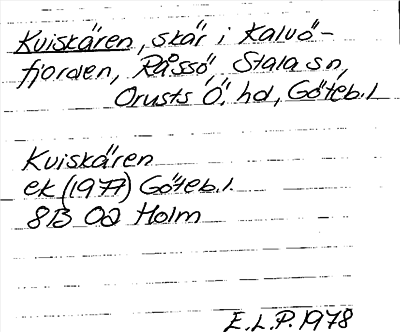 Kviskären, skär i Kalvö-
fjorden, Råssö, Stala sn,
Orusts Ö. hd, Göteb.l
Kviskären
ek (1977) Göteb.l.
8B 0a Holm
E.L.P. 1978